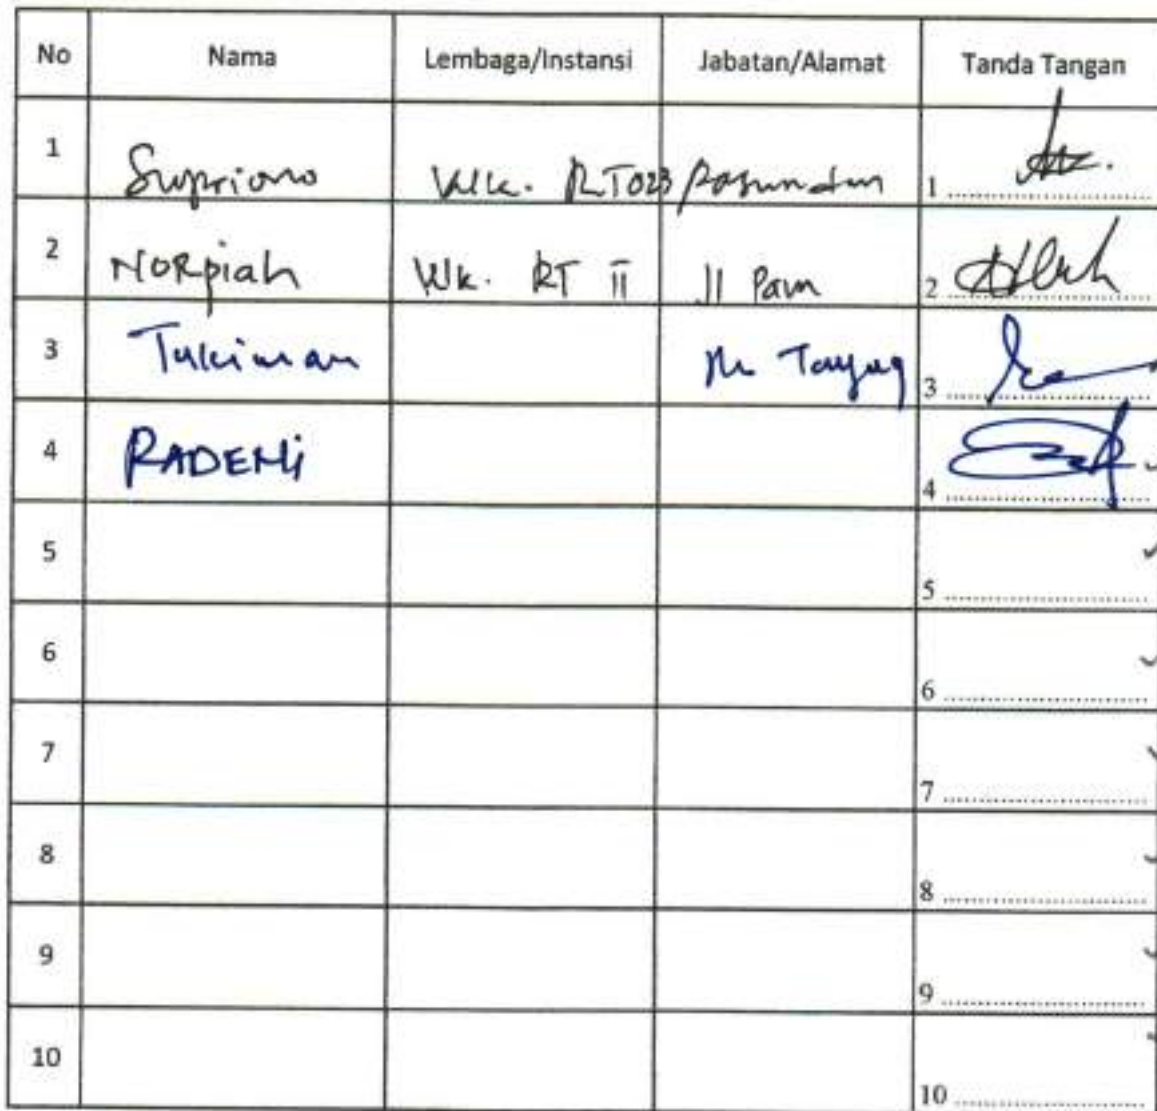 No Nama Lembaga/Instansi Jabatan/Alamat Tanda Tangan
1 Supriono RT023 Pasundan 1
2 Norpiah Wk. RT II Jl Pam 2
3 Tukiman 3
4 RADEMi 4
5 5
6 6
7 7
8 8
9 9
10 10